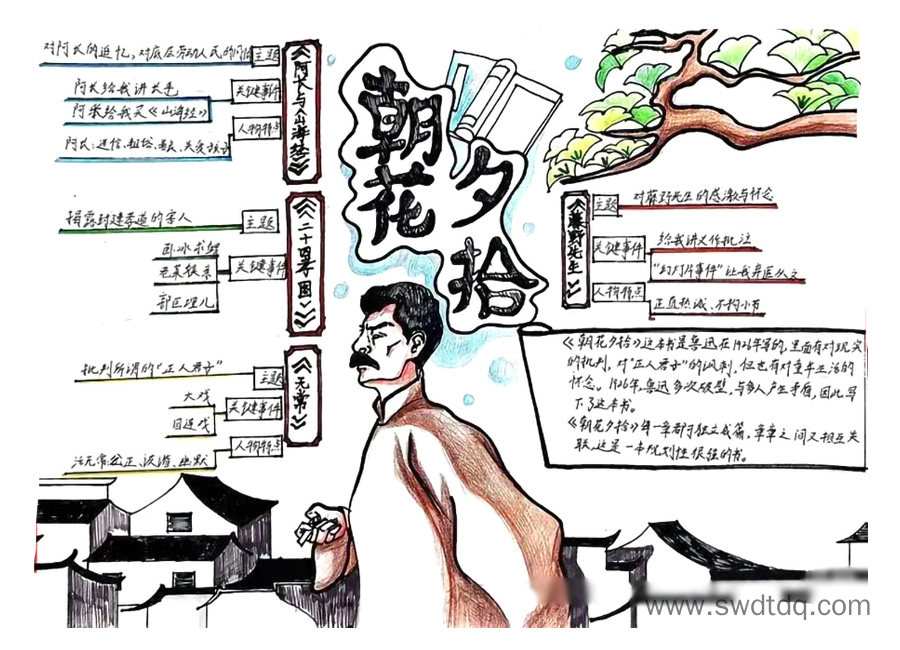 朝花
夕拾
《阿长与山海经》
主题
对阿长的追忆,对底层劳动人民的同情
关键事件
阿长给我讲长毛
阿长给我买《山海经》
人物特点
阿长:迷信、粗俗、善良、关爱孩子
《二十四孝图》
主题
揭露封建孝道的害人
关键事件
卧冰求鲤
老莱娱亲
郭巨埋儿
《无常》
主题
批判所谓的“正人君子”
关键事件
大戏
目连戏
人物特点
活无常:公正、诙谐、幽默
《藤野先生》
主题
对藤野先生的感激与怀念
关键事件
给我讲义作批注
“幻灯片事件”让我弃医从文
人物特点
正直热诚、不拘小节
《朝花夕拾》这本书是鲁迅在1926年写的,里面有对现实
的批判,对“正人君子”的讽刺,但也有对童年生活的
怀念。1926年,鲁迅多次碰壁,与多人产生矛盾,因此写
下了这本书。
《朝花夕拾》每一章都可独立成篇,章章之间又相互关
联,这是一本规划性很强的书。
www.swdtdq.com